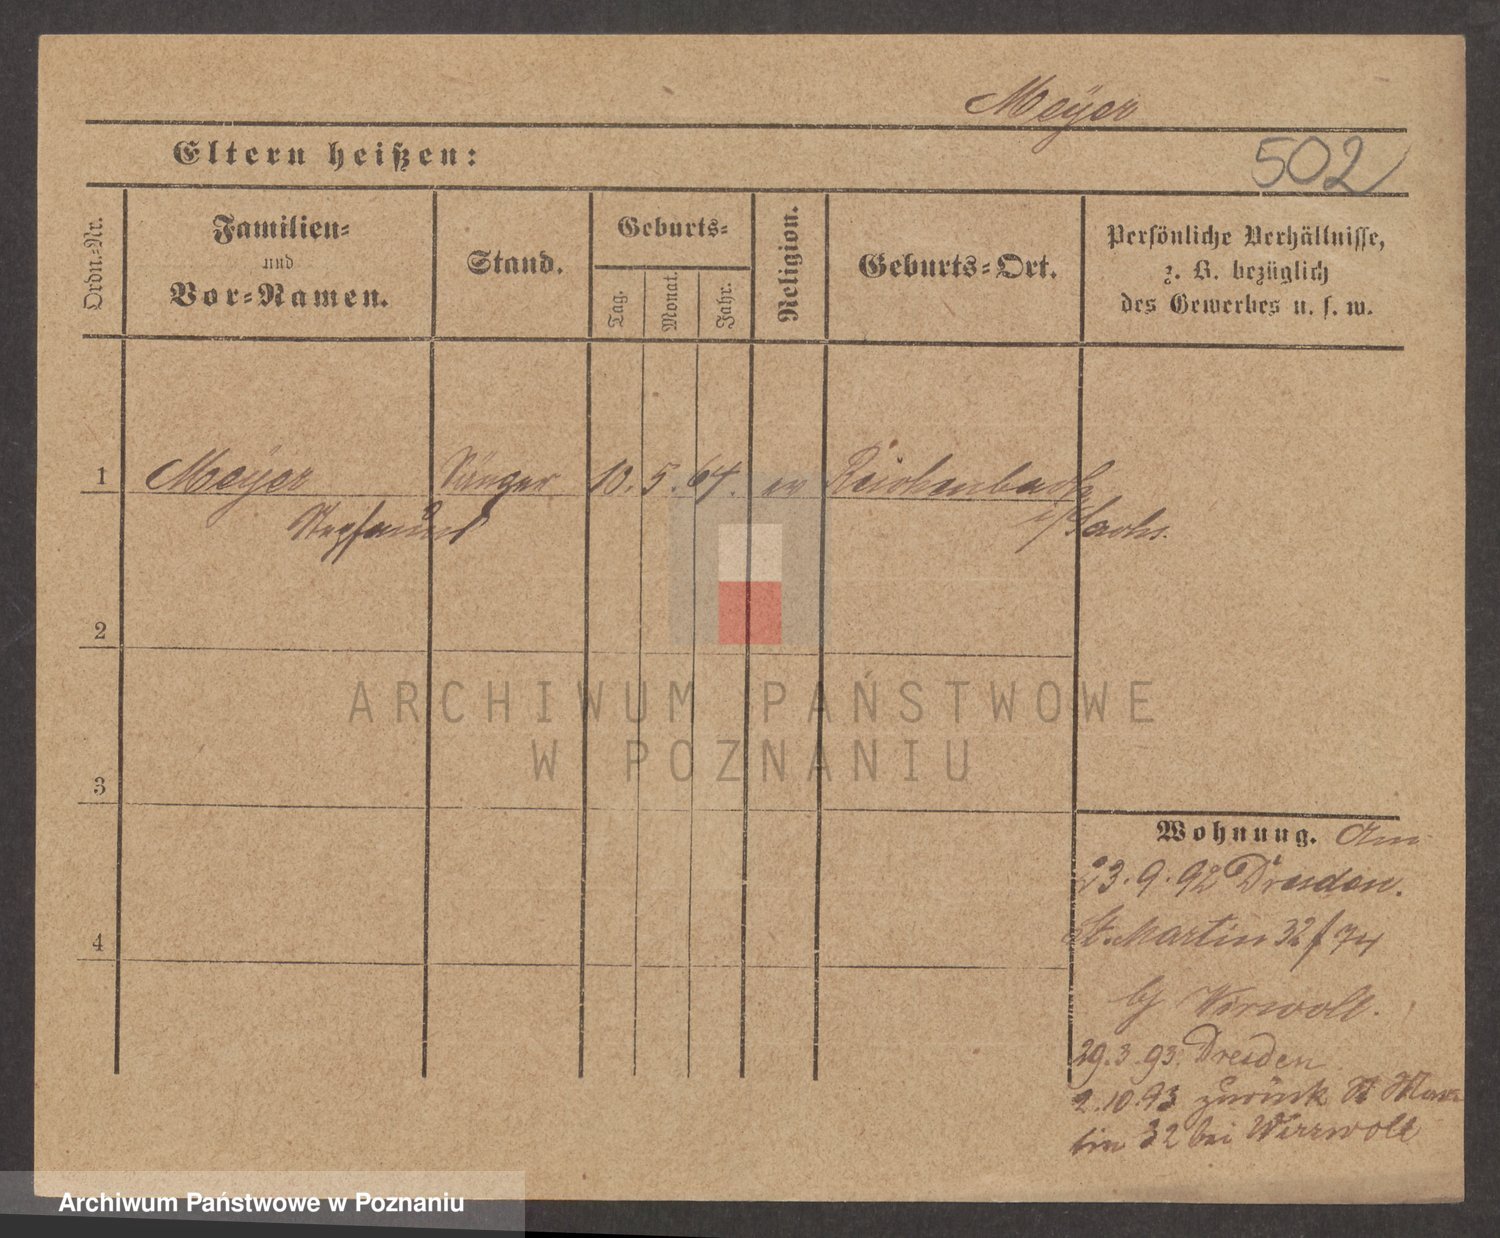 Meÿer
Eltern heißen:
502
Ordn.-Nr.
Familien-
und
Vor-Namen.
Stand.
Geburts-
Tag.
Monat.
Jahr.
Religion.
Geburts-Ort.
Persönliche Verhältnisse,
z. B. bezüglich
des Gewerbes u. s. w.
1 Meÿer Sänger 10. 5. 64. ev Reichenbach
i/Sachs.
2
ARCHIWUM PAŃSTWOWE
W POZNANIU
3
Wohnung. Am
23.9.92 Dresden.
St. Martin 32 / 74
29.3.93. Dresden
2.10.93 zurück St Mar-
tin 32 bei Wirrwolt
4
Archiwum Państwowe w Poznaniu